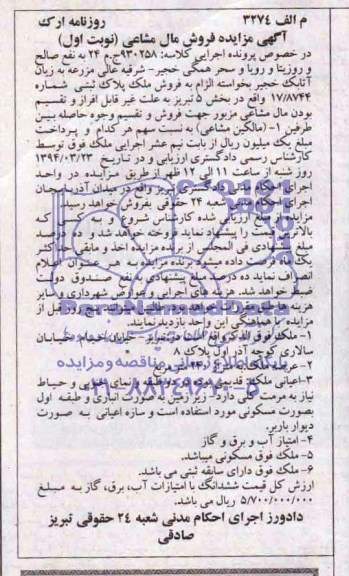 م الف ۳۲۷۴ روزنامه ارک
آگهی مزایده فروش مال مشاعی (نوبت اول)
در خصوص پرونده اجرایی کلاسه: ۹۳۰۲۵۸ج.م ۲۴ به نفع صالح
و روزیتا و رویا و سحر همگی خجیر- شرقیه عالی مزرعه به زیان
آتابک خجیر بخواسته الزام به فروش ملک پلاک ثبتی شماره
۱۷/۸۷۴۴ واقع در بخش ۵ تبریز به علت غیر قابل افراز و تقسیم
بودن مال مشاعی مزبور جهت فروش و تقسیم وجوه حاصله بین
طرفین ۱- (مالکین مشاعی) به نسبت سهم هر کدام و پرداخت
مبلغ یک میلیون ریال از بابت نیم عشر اجرایی ملک فوق توسط
کارشناس رسمی دادگستری ارزیابی و در تاریخ ۱۳۹۴/۰۳/۲۳
روز شنبه از ساعت ۱۱ الی ۱۲ ظهر از طریق مزایده در واحد
اجرای احکام مدنی دادگستری تبریز واقع در میدان آذربایجان
اجرای احکام مدنی شعبه ۲۴ حقوقی بفروش خواهد رسید.
مزایده از مبلغ ارزیابی شده کارشناس شروع و به کسی که
بالاترین قیمت را پیشنهاد نماید فروخته خواهد شد و ده درصد
مبلغ پیشنهادی فی المجلس از برنده مزایده اخذ و مابقی حداکثر
یک ماه مهلت داده میشود برنده مزایده به هر عنوان اعلام
انصراف نماید ده درصد مبلغ پیشنهادی به نفع صندوق دولت
ضبط خواهد شد. هزینه های اجرایی و عوارض شهرداری و سایر
هزینه ها طبق مقررات خواهد بود. طالبین میتوانند پنج روز قبل از
مزایده با هماهنگی این واحد بازدید نمایند.
۱- ملک فوق الذکر واقع است در تبریز- خیابان خیام- خیابان
سالاری کوچه آذر اول پلاک ۸
۲- عرصه ملک به متراژ
۳- اعیانی ملک: قدیمی بوده در دو طبقه و نمای غربی و حیاط
نیاز به مرمت کلی دارد- زیر زمین به صورت انباری و طبقه اول
بصورت مسکونی مورد استفاده است و سازه اعیانی به صورت
دیوار باربر.
۴- امتیاز آب و برق و گاز
۵- ملک فوق مسکونی میباشد.
۶- ملک فوق دارای سابقه ثبتی می باشد.
ارزش کل قیمت ششدانگ با امتیازات آب، برق، گاز به مبلغ
۵/۷۰۰/۰۰۰/۰۰۰ ریال می باشد.
دادورز اجرای احکام مدنی شعبه ۲۴ حقوقی تبریز
صادقی